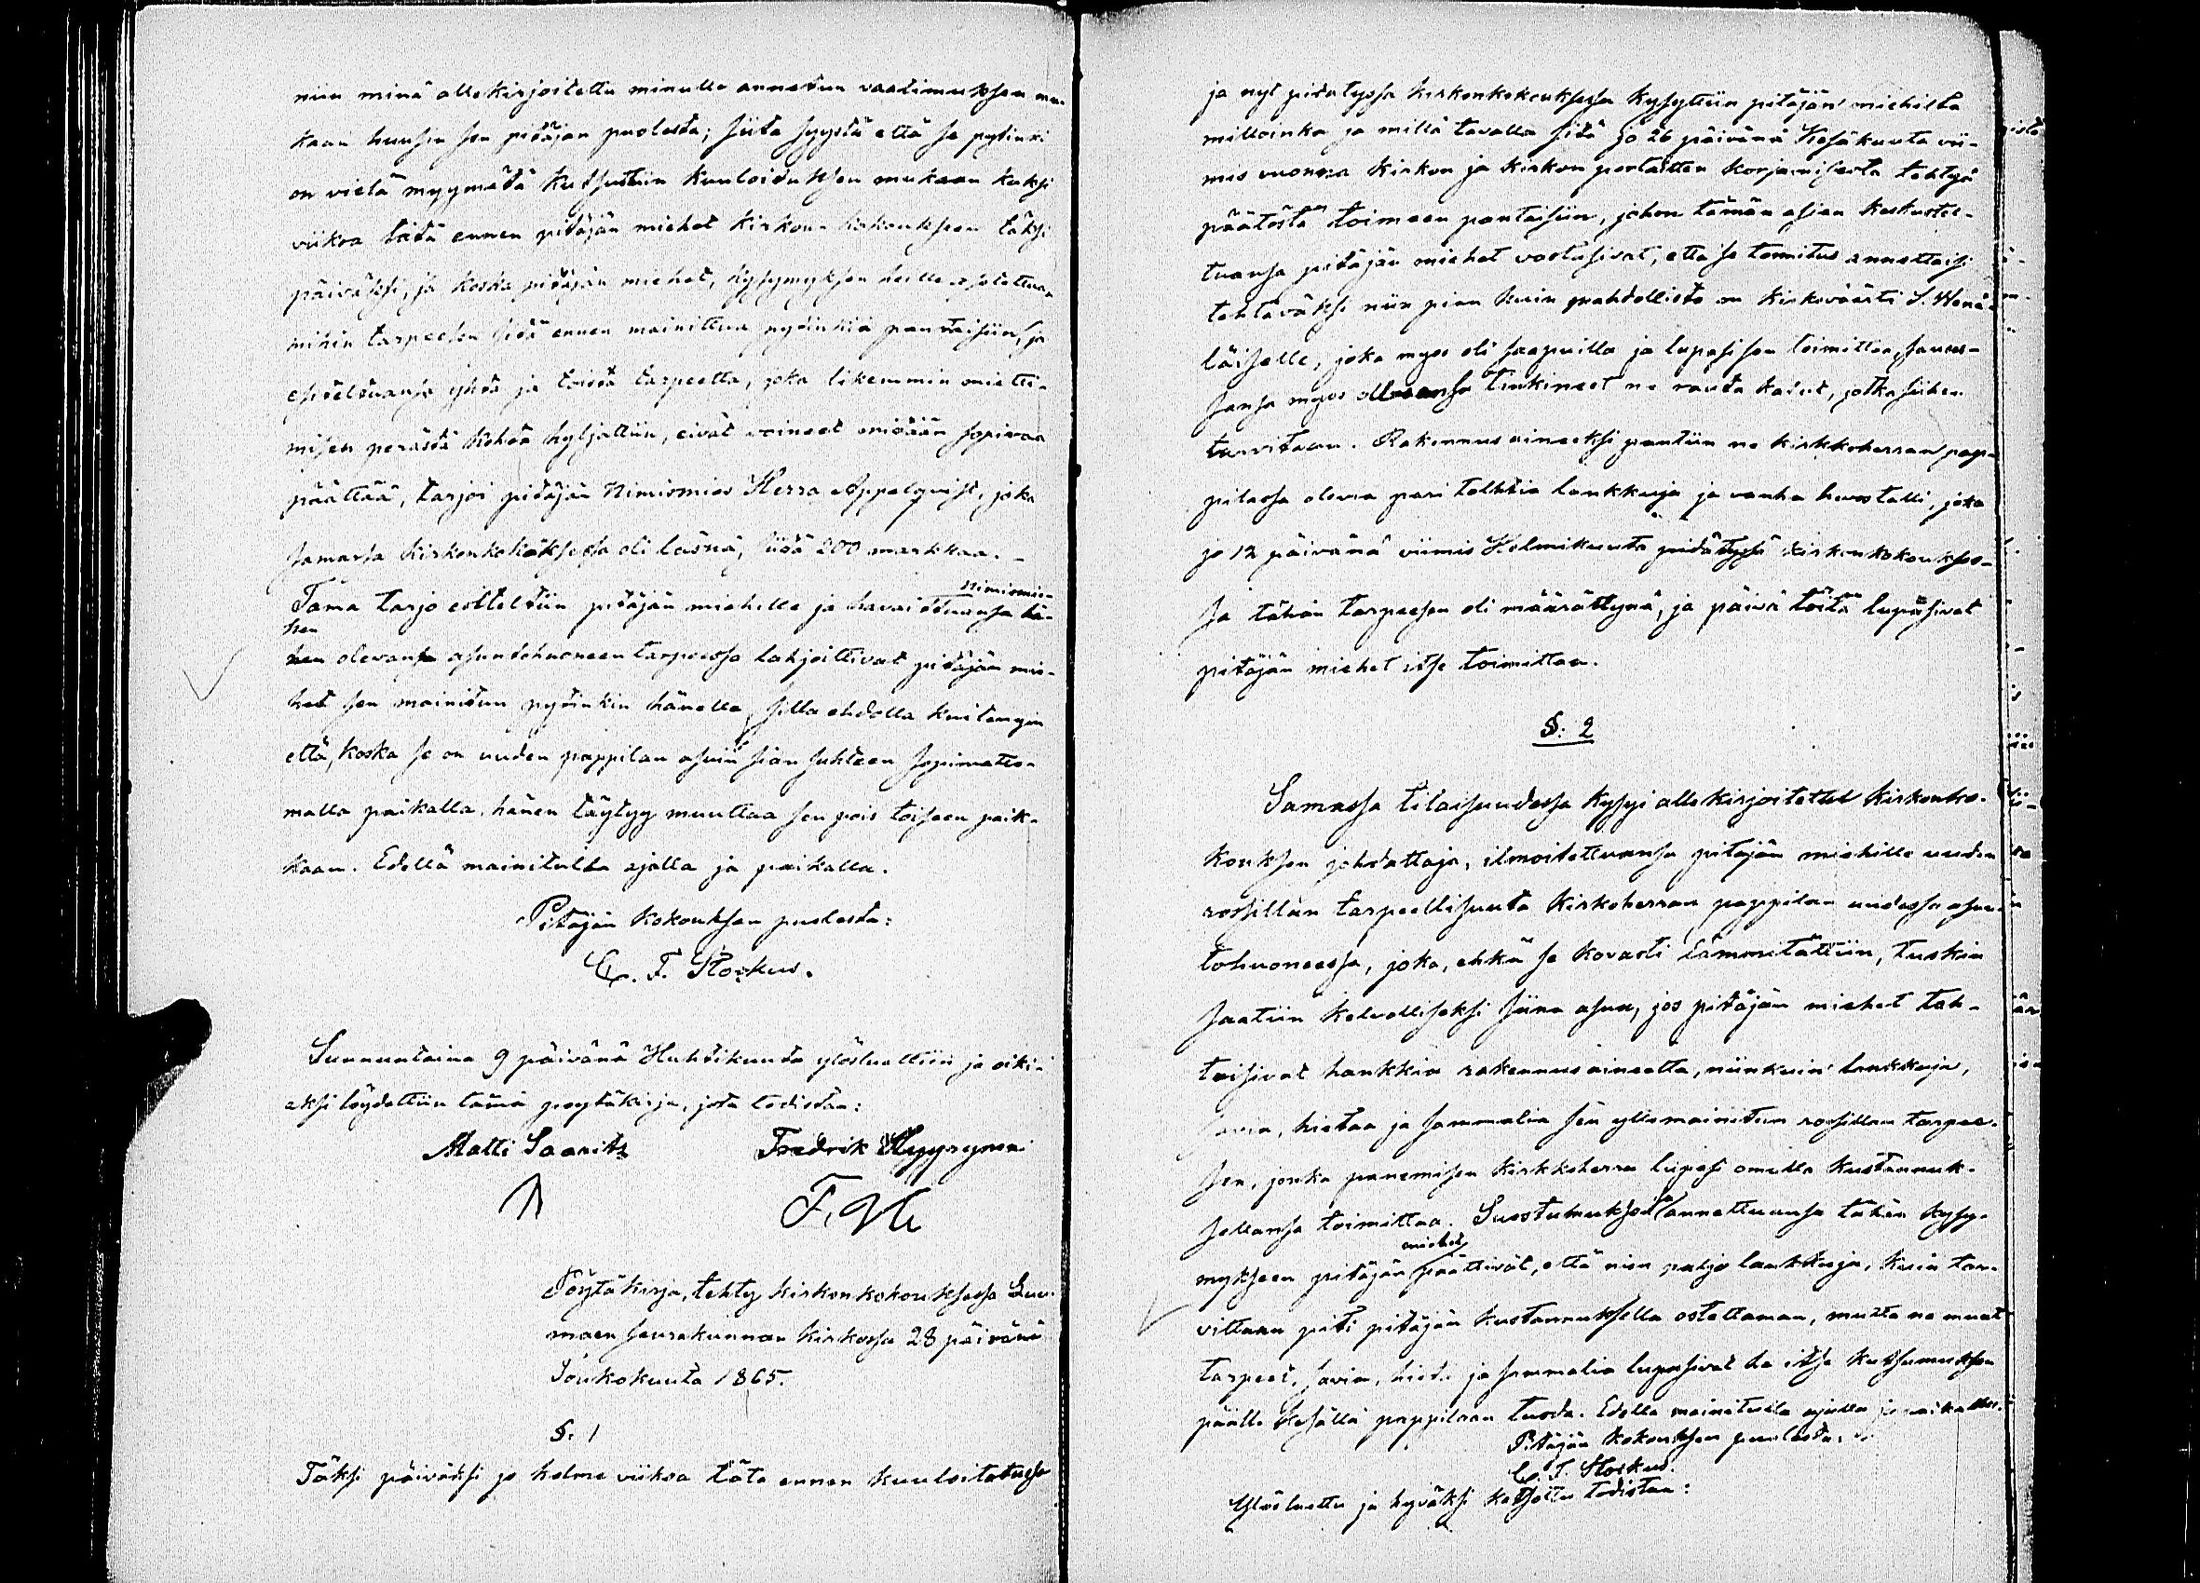 niin minä allekirjoitettu minulle annetun vaatimuksen mu-
kaan huusin sen pitäjän puolesta; siitä syystä että se pytinki
on vielä myymätä kutsuttiin kuuloituksen mukaan kaksi
viikoa tätä ennen pitäjän miehet kirkon kokoukseen täksi
päiväksi, ja koska pitäjän miehet, kysymyksen heille esitettua
mihin tarpeesen sitä ennen mainittua pytinkiä pantaisiin, ja
esiteltuansa yhtä ja toista tarpeetta, joka likemmin mietti-
misen perästä kohta hyljattiin, eivät voineet mitään sopivaa
päättää, tarjoi pitäjän Nimismies Herra Appelqvist, joka
samassa kirkonkokouksessa oli läsnä, siitä 200 markkaa. -
Tämä tarjo esiteltiin pitäjän miehille ja havaittuansa nimismie-
hen
hen olevansa asuntohuoneen tarpeessa lahjoittivat pitäjän mie-
het sen mainitun pytinkin hänelle, sillä ehdolla kuitengin
että, koska se on uuden pappilan asuin sian suhteen sopimatto-
malla paikalla, hänen täytyy muuttaa sen pois toiseen paik-
kaan. Edellä mainitulla ajalla ja paikalla.
Pitäjän kokouksen puolesta:
C. F. Stockus.
Sunnuntaina 9 päivänä Huhtikuuta ylösluettiin ja oiki-
aksi löydettiin tämä poytäkirja, jota todistaa:
Matti Saarits Fredrik Hyyryynen
F. H
Pöytäkirja, tehty kirkonkokouksessa Luu-
mäen seurakunnan kirkossa 28 päivänä
Toukokuuta 1865.
§. 1
Täksi päiväksi jo kolme viikoa täta ennen kuuloitetussa
ja nyt pidetyssä kirkonkokouksessa kysyttiin pitäjän miehiltä
milloinka ja millä tavalla sitä jo 26 päivänä Kesäkuuta vii-
mis vuonna kirkon ja kirkon portaitten korjamisesta tehtyä
päätöstä toimeen pantaisiin, johon tämän asian keskustel-
tuansa pitäjän miehet vastasivat, että se toimitus annettaisi
tehtäväksi niin pian kuin mahdollista on kirkoväärti S. Wenä-
läiselle, joka myos oli saapuilla ja lupasi sen toimittaa, sanoo-
sansa myos ollevansa tinkineet ne rauta kalut, jotka siihen
tarvitaan. Rakennus aineeksi pantiin ne kirkkoherran pap-
pilassa olevia pari tolttia lankkuja ja vanha hevostalli, joka
jo 12 päivänä viimis Helmikuuta pidätyssä kirkonkokoukses-
sa tähän tarpeesen oli määrättynä, ja päivä töitä lupasivat
pitäjän miehet itse toimittaa.
§. 2
Samassa tilaisuudessa kysyi allekirjoitettu kirkonko-
kouksen johdattaja, ilmoitettuansa pitäjän miehille uuden
rossillan tarpeellisuuta kirkoherran pappilan uudessa asun-
tohuoneessa, joka, ehkä se kovasti lämmitättiin, tuskin
saatiin kelvolliseksi siinä asua, jos pitäjän miehet tah-
toisivat hankkia rakennus aineetta, niinkuin lankkuja,
savia, hietaa ja sammalia sen yllämainitun rossillan tarpee-
sen, jonka panemisen kirkkoherra lupasi omalla kustannuk-
sellansa toimittaa. Suostumuksensa annettuansa tähän kysy-
mykseen pitäjän miehet päättivät, että niin paljo lankkuja, kuin tar-
vittaan piti pitäjän kustannuksella ostettaman, mutta ne muut
tarpeet, savia, hieta ja sammalia lupasivat he itse kutsumuksen
päälle kesällä pappilaan tuoda. Edellä mainitulla ajalla ja paikalla.
Pitäjän kokouksen puolesta:
C. F. Stockus.
Ylösluettu ja hyväksi katsottu todistaa: